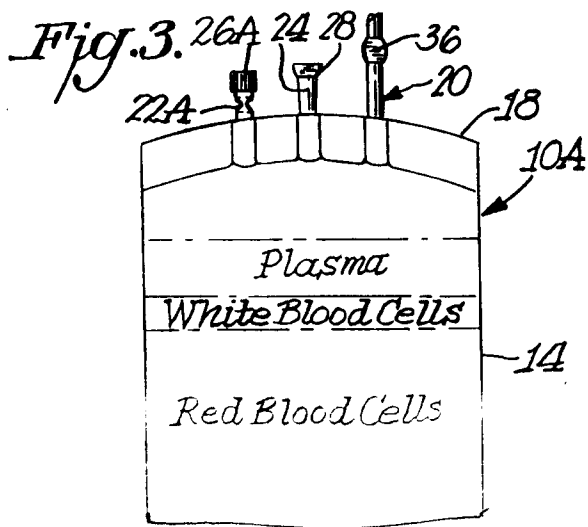 Fig. 3.
26A
24
28
36
22A
20
18
10A
Plasma
White Blood Cells
14
Red Blood Cells